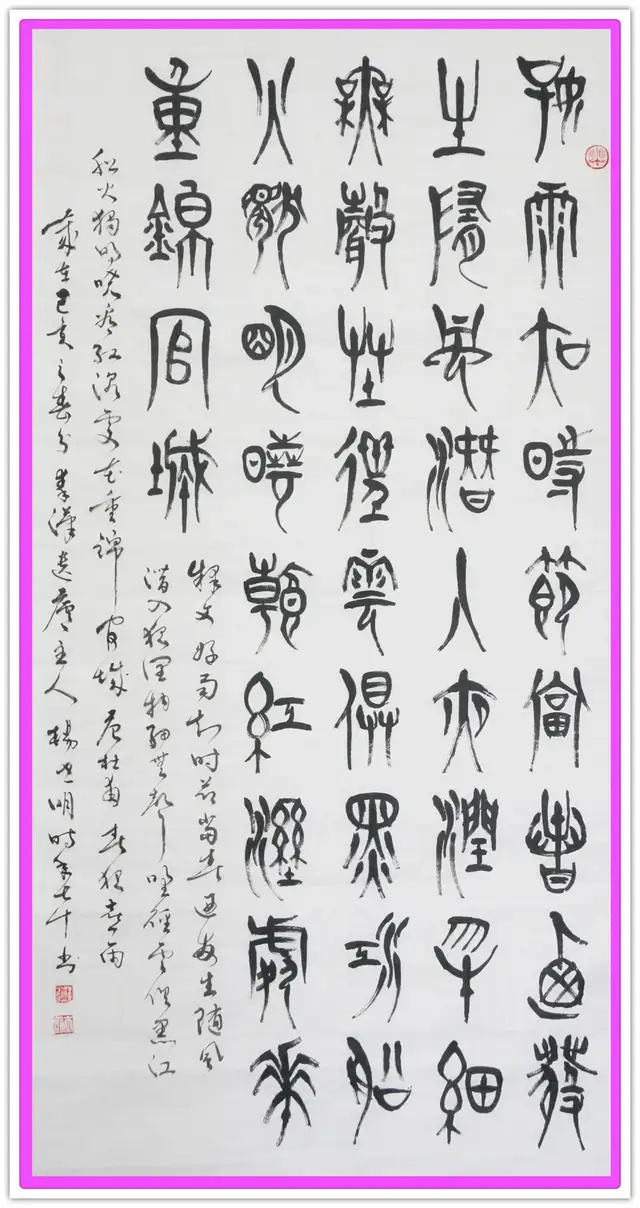 好雨知時節當春迺發
生隨風潛入夜潤物細
無聲埜徑雲俱黑江船
火獨明曉看紅濕處花
重錦官城
释文好雨知时节当春迺发生随风
潜入夜润物细無声野径云俱黑江
船火獨明晓看红湿處花重锦官城唐杜甫春夜喜雨
歲在己亥之春分秦漢遗庐主人楊明时年七十书